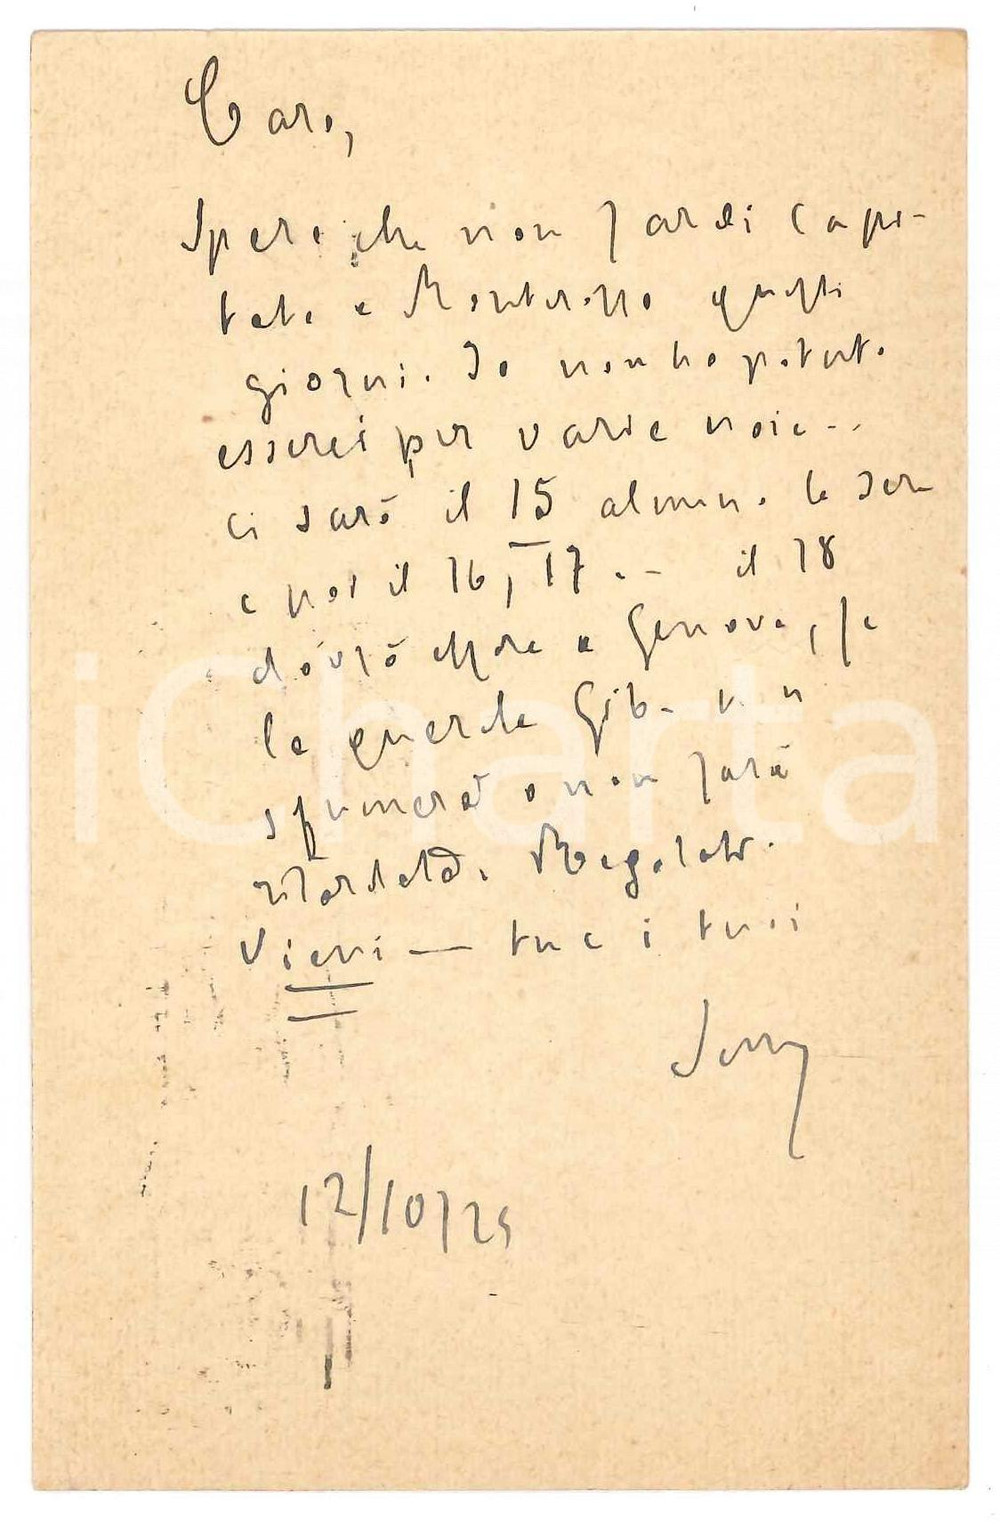 Caro,
Spero che non sarai capi-
tato a Monterosso questi
giorni. Io non ho potuto
esserci per varie noie..
ci sarò il 15 almeno la sera
e poi il 16, 17.- il 18
dovrò essere a Genova, se
la non
sfumerà o non sarà
ritardata. Regolati.
Vieni — tuo i tuoi
12/10/25
iCharta